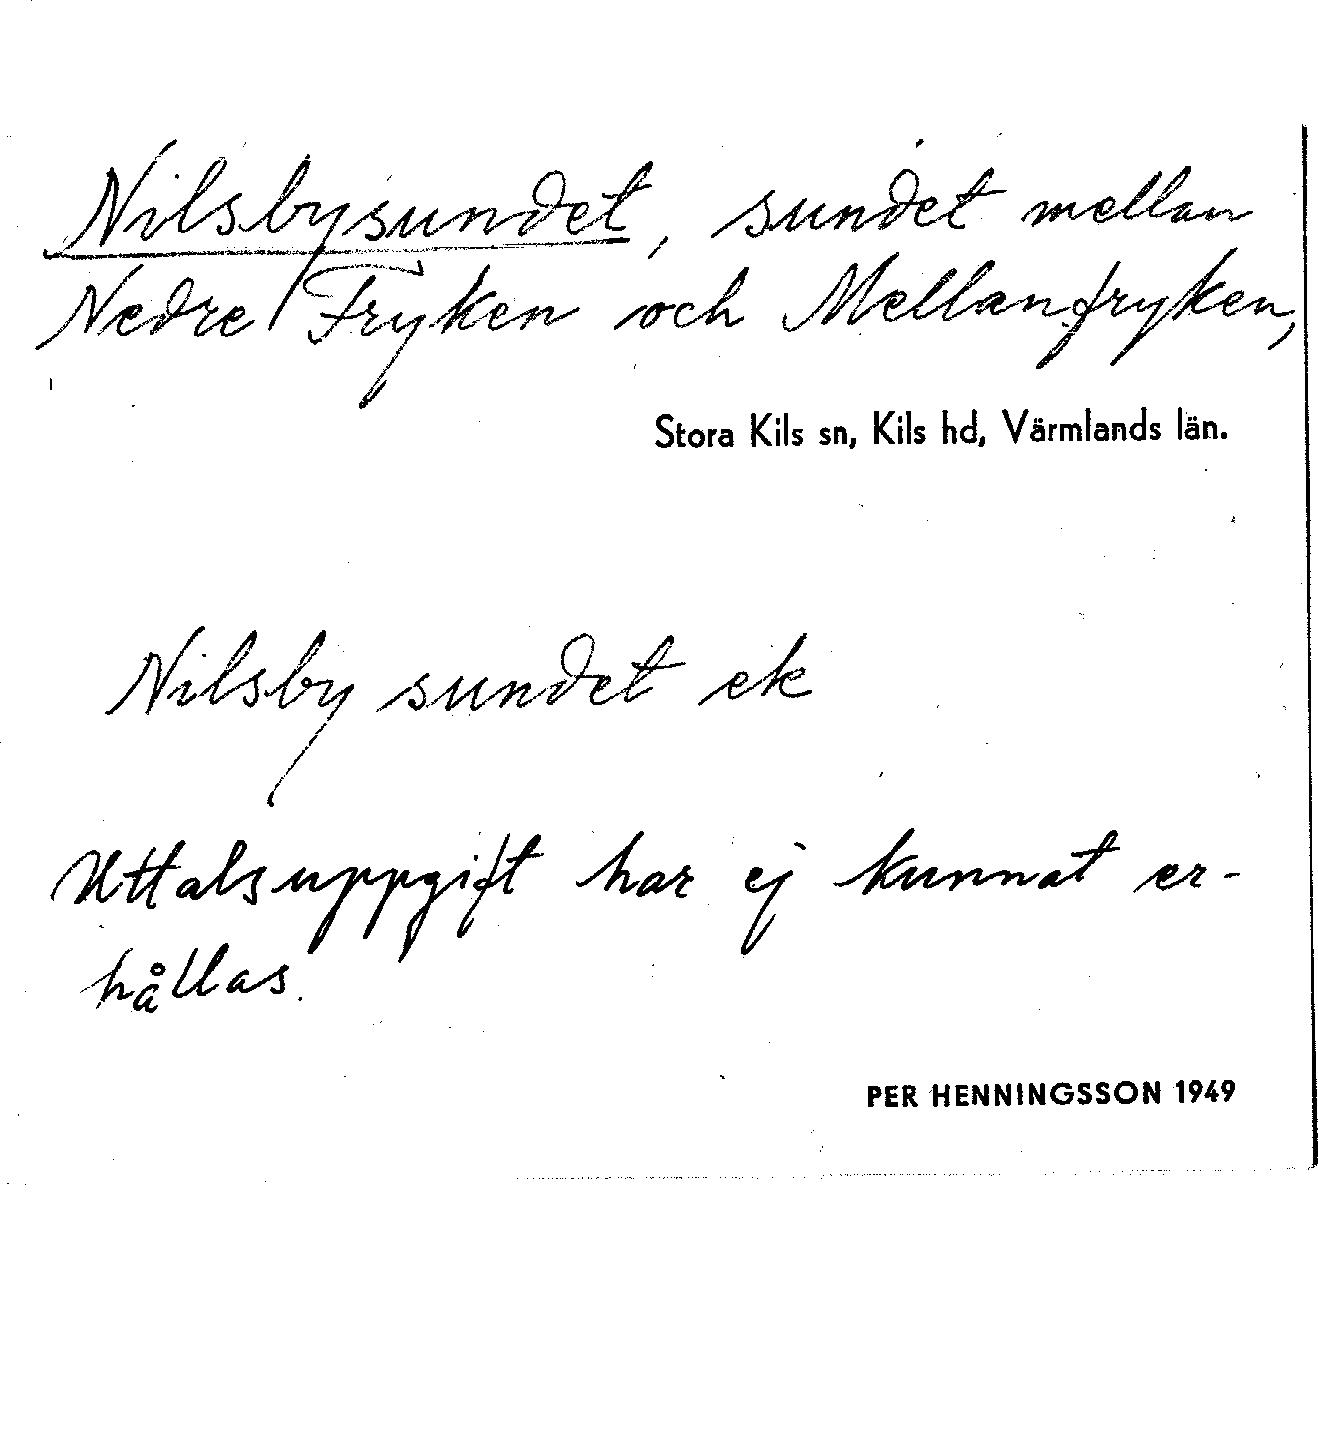 Nilsbysundet, sundet mellan
Nedre Fryken och Mellanfryken,
Stora Kils sn, Kils hd, Värmlands län.
Nilsby sundet ek
Uttalsuppgift har ej kunnat er-
hållas.
PER HENNINGSSON 1949